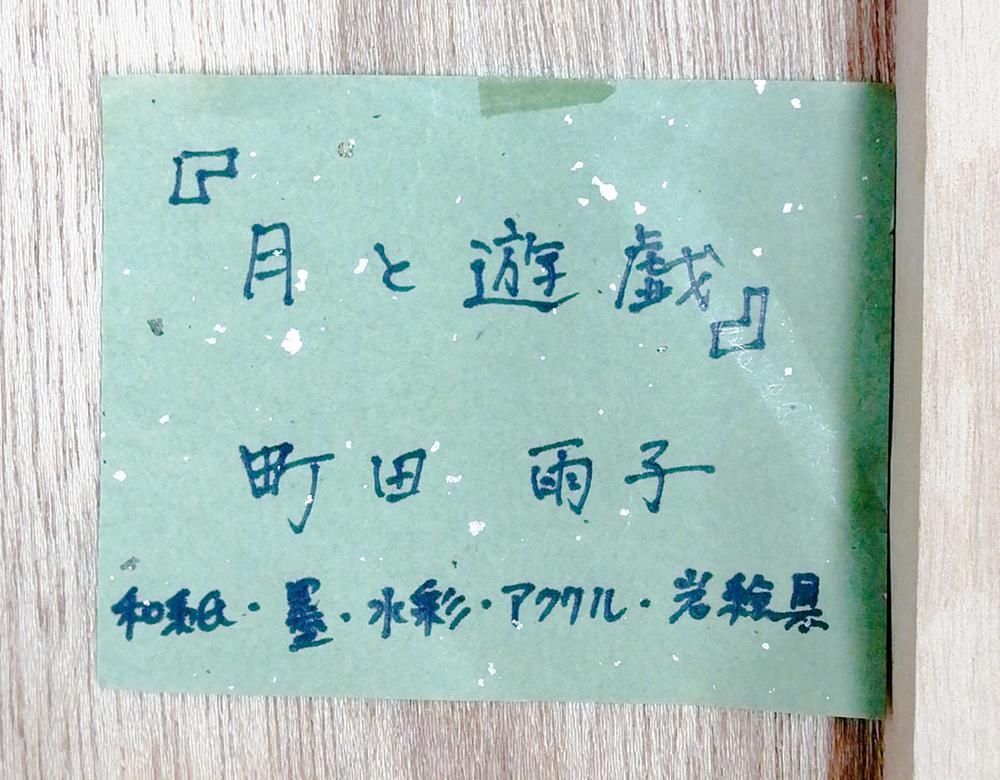 『月と遊戯』
町田 雨子
和紙・墨・水彩・アクリル・岩絵具